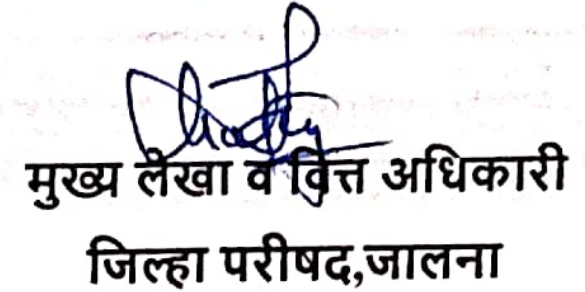 मुख्य लेखा व वित्त अधिकारी
जिल्हा परीषद,जालना